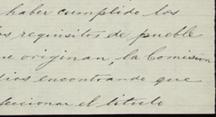 haber cumplido los
requisitos de pueble
originan, la Comision
encontrando que
el titulo